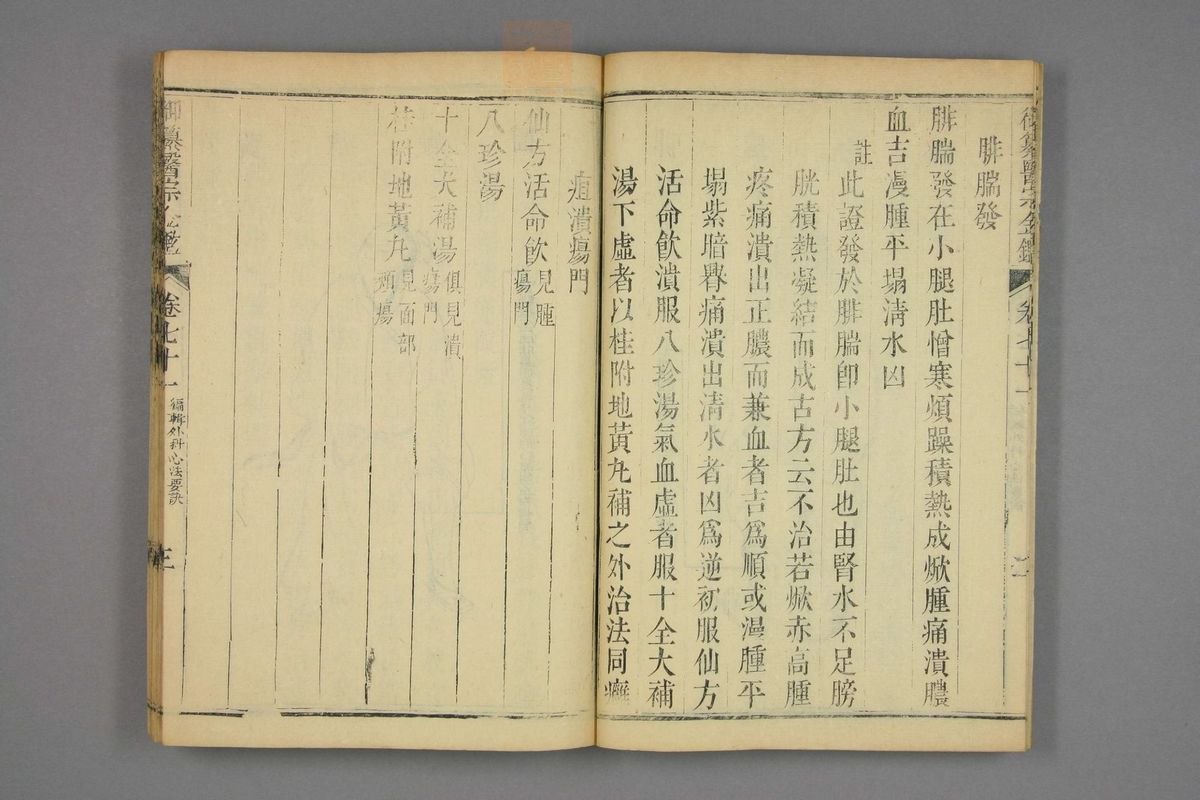 御纂醫宗金鑑 卷七十一
腓腨發
腓腨發在小腿肚憎寒煩躁積熱成焮腫痛潰膿
血吉漫腫平塌淸水凶
註
此證發於腓腨卽小腿肚也由腎水不足膀
胱積熱凝結而成古方云不治若焮赤高腫
疼痛潰出正膿而兼血者吉爲順或漫腫平
塌紫暗臖痛潰出淸水者凶爲逆初服仙方
活命飮潰服八珍湯氣血虛者服十全大補
湯下虛者以桂附地黃丸補之外治法同癰
疽潰瘍門
仙方活命飮 見腫
瘍門
八珍湯
十全大補湯 俱見潰
瘍門
桂附地黃丸 見面部
頰瘍
御纂醫宗金鑑 卷七十一 編輯外科心法要訣 三